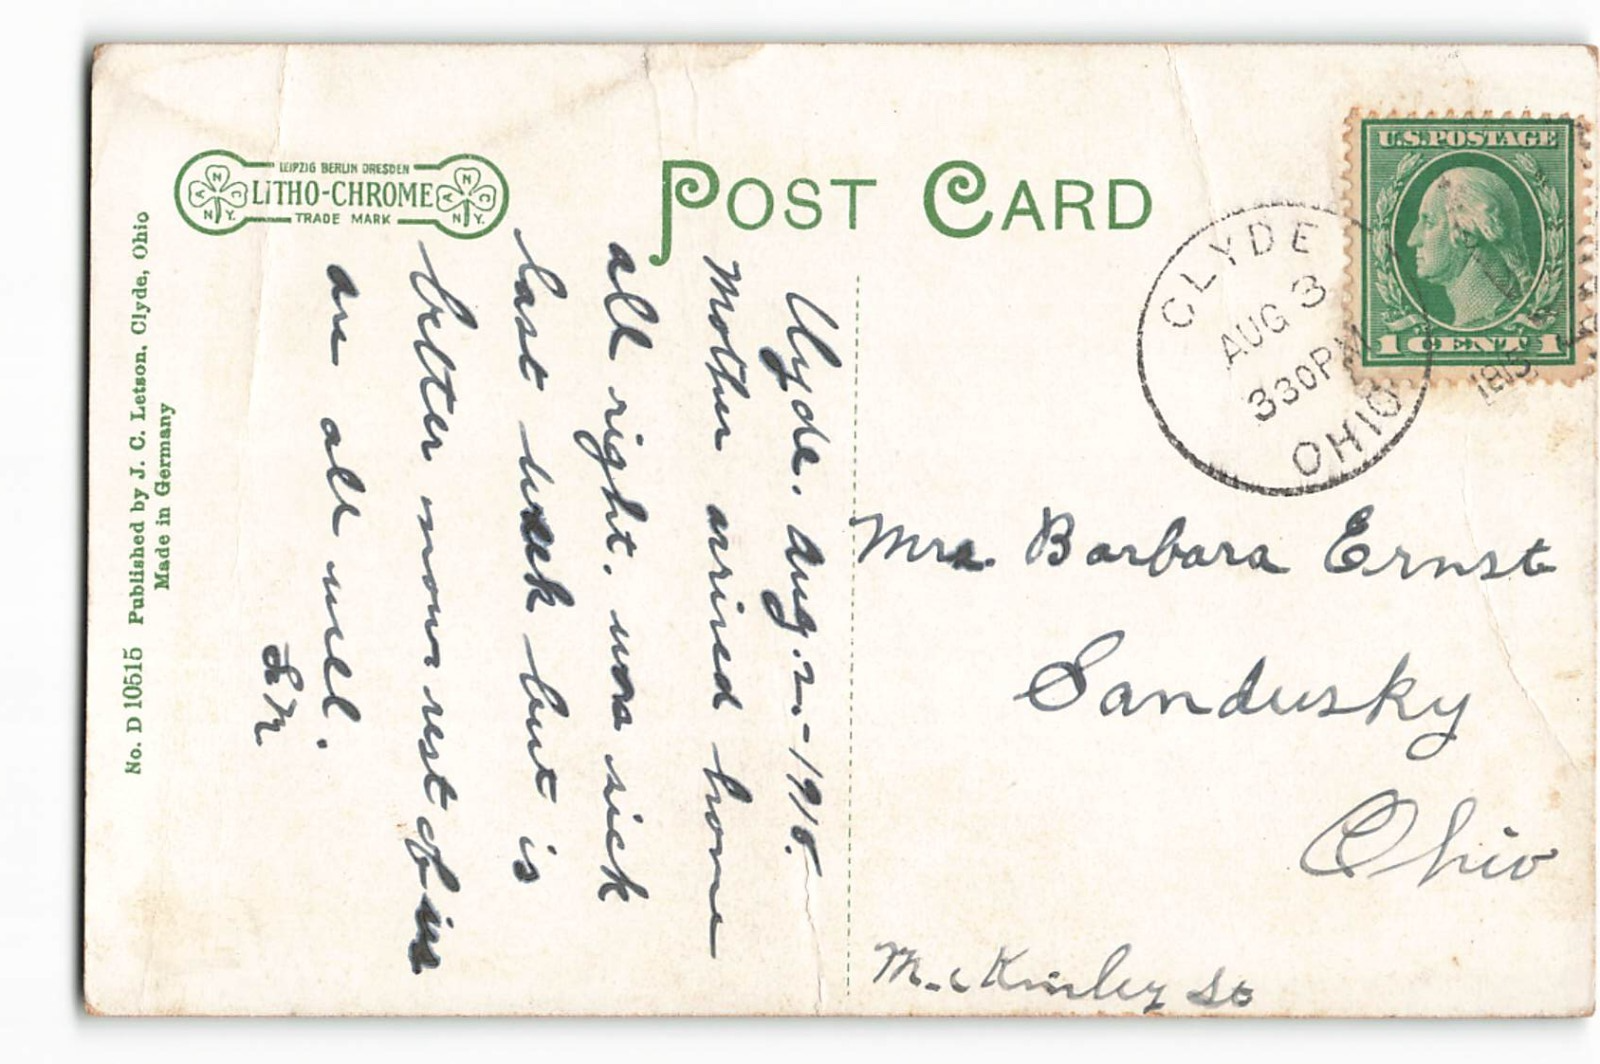 LEIPZIG BERLIN DRESDEN
LITHO-CHROME
TRADE MARK
A N C
N. Y.
A N C
N. Y.
POST CARD
U.S. POSTAGE
1 CENT 1
CLYDE
AUG 3
330PM
1915
OHIO
Clyde. Aug. 2-1915.
Mother arrived home
all right. was sick
last week but is
better now rest of us
are all well.
Mrs. Barbara Ernst
Sandusky
Ohio
McKinley St
No. D 10515 Published by J. C. Letson, Clyde, Ohio
Made in Germany